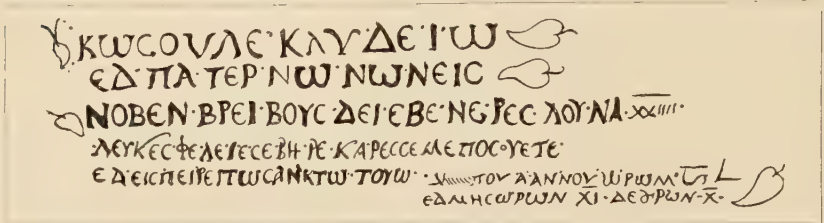 ΚΩϹΟΥΛΕ·ΚΛΥ·ΔΕ·Ι·Ω
ΕΔ·ΠΑ·ΤΕΡ·ΝΩ·ΝΩΝΕΙϹ
ΝΟΒΕΝ·ΒΡΕΙ·ΒΟΥϹ·ΔΕΙ·ΕΒΕ·ΝΕ·ΡΕϹ ΛΟΥ·ΝΑ·XXIIII·
·ΛΕΥΚΕϹ·ΦΕΛΕΙΕϹΕΒΗ·ΡΕ·ΚΑΡΕϹϹΕΜΕΠΟϹ·ΟΥΕΤΕ·
ΕΔΕΙϹΠΕΙΡΕΙΤΩϹΑΝΚΤΩ·ΤΟΥΩ· ΤΟΥ ΑΑΝΝΟΥ·ΩΡΩΜ·
ΕΔΜΗϹΩΡΩΝ XI·ΔΕΩΡΩΝ·X·